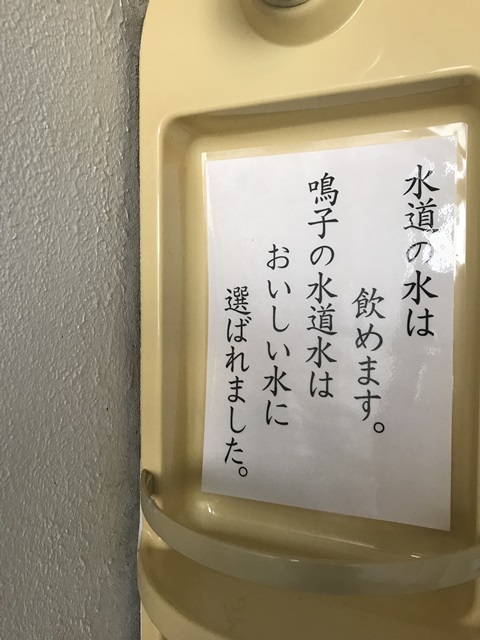 水道の水は
飲めます。
鳴子の水道水は
おいしい水に
選ばれました。